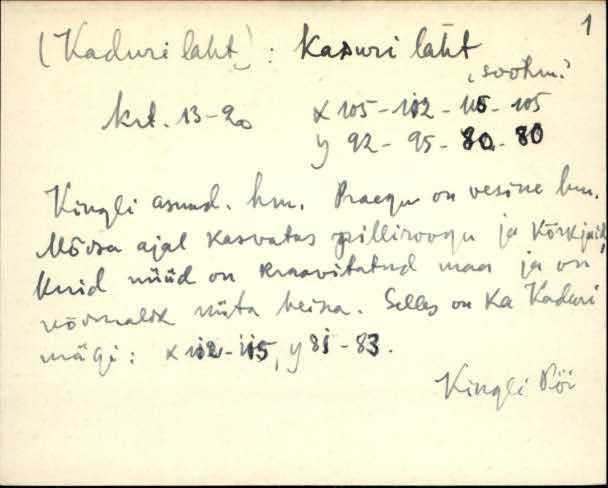 1
(Kaduri laht): Kaduri laht
, soohm.
krt. 13-20 x 105-102-115-105
y 92-95-80-80
Kingli asund. hm. Praegu on vesine hm.
Mõisa ajal kasvatas pilliroogu ja kõrkjaid,
kuid nüüd on kraavitatud maa ja on
võimalik niita heina. Selles on ka Kaduri
mägi: x 112-115, y 81-83.
Kingli